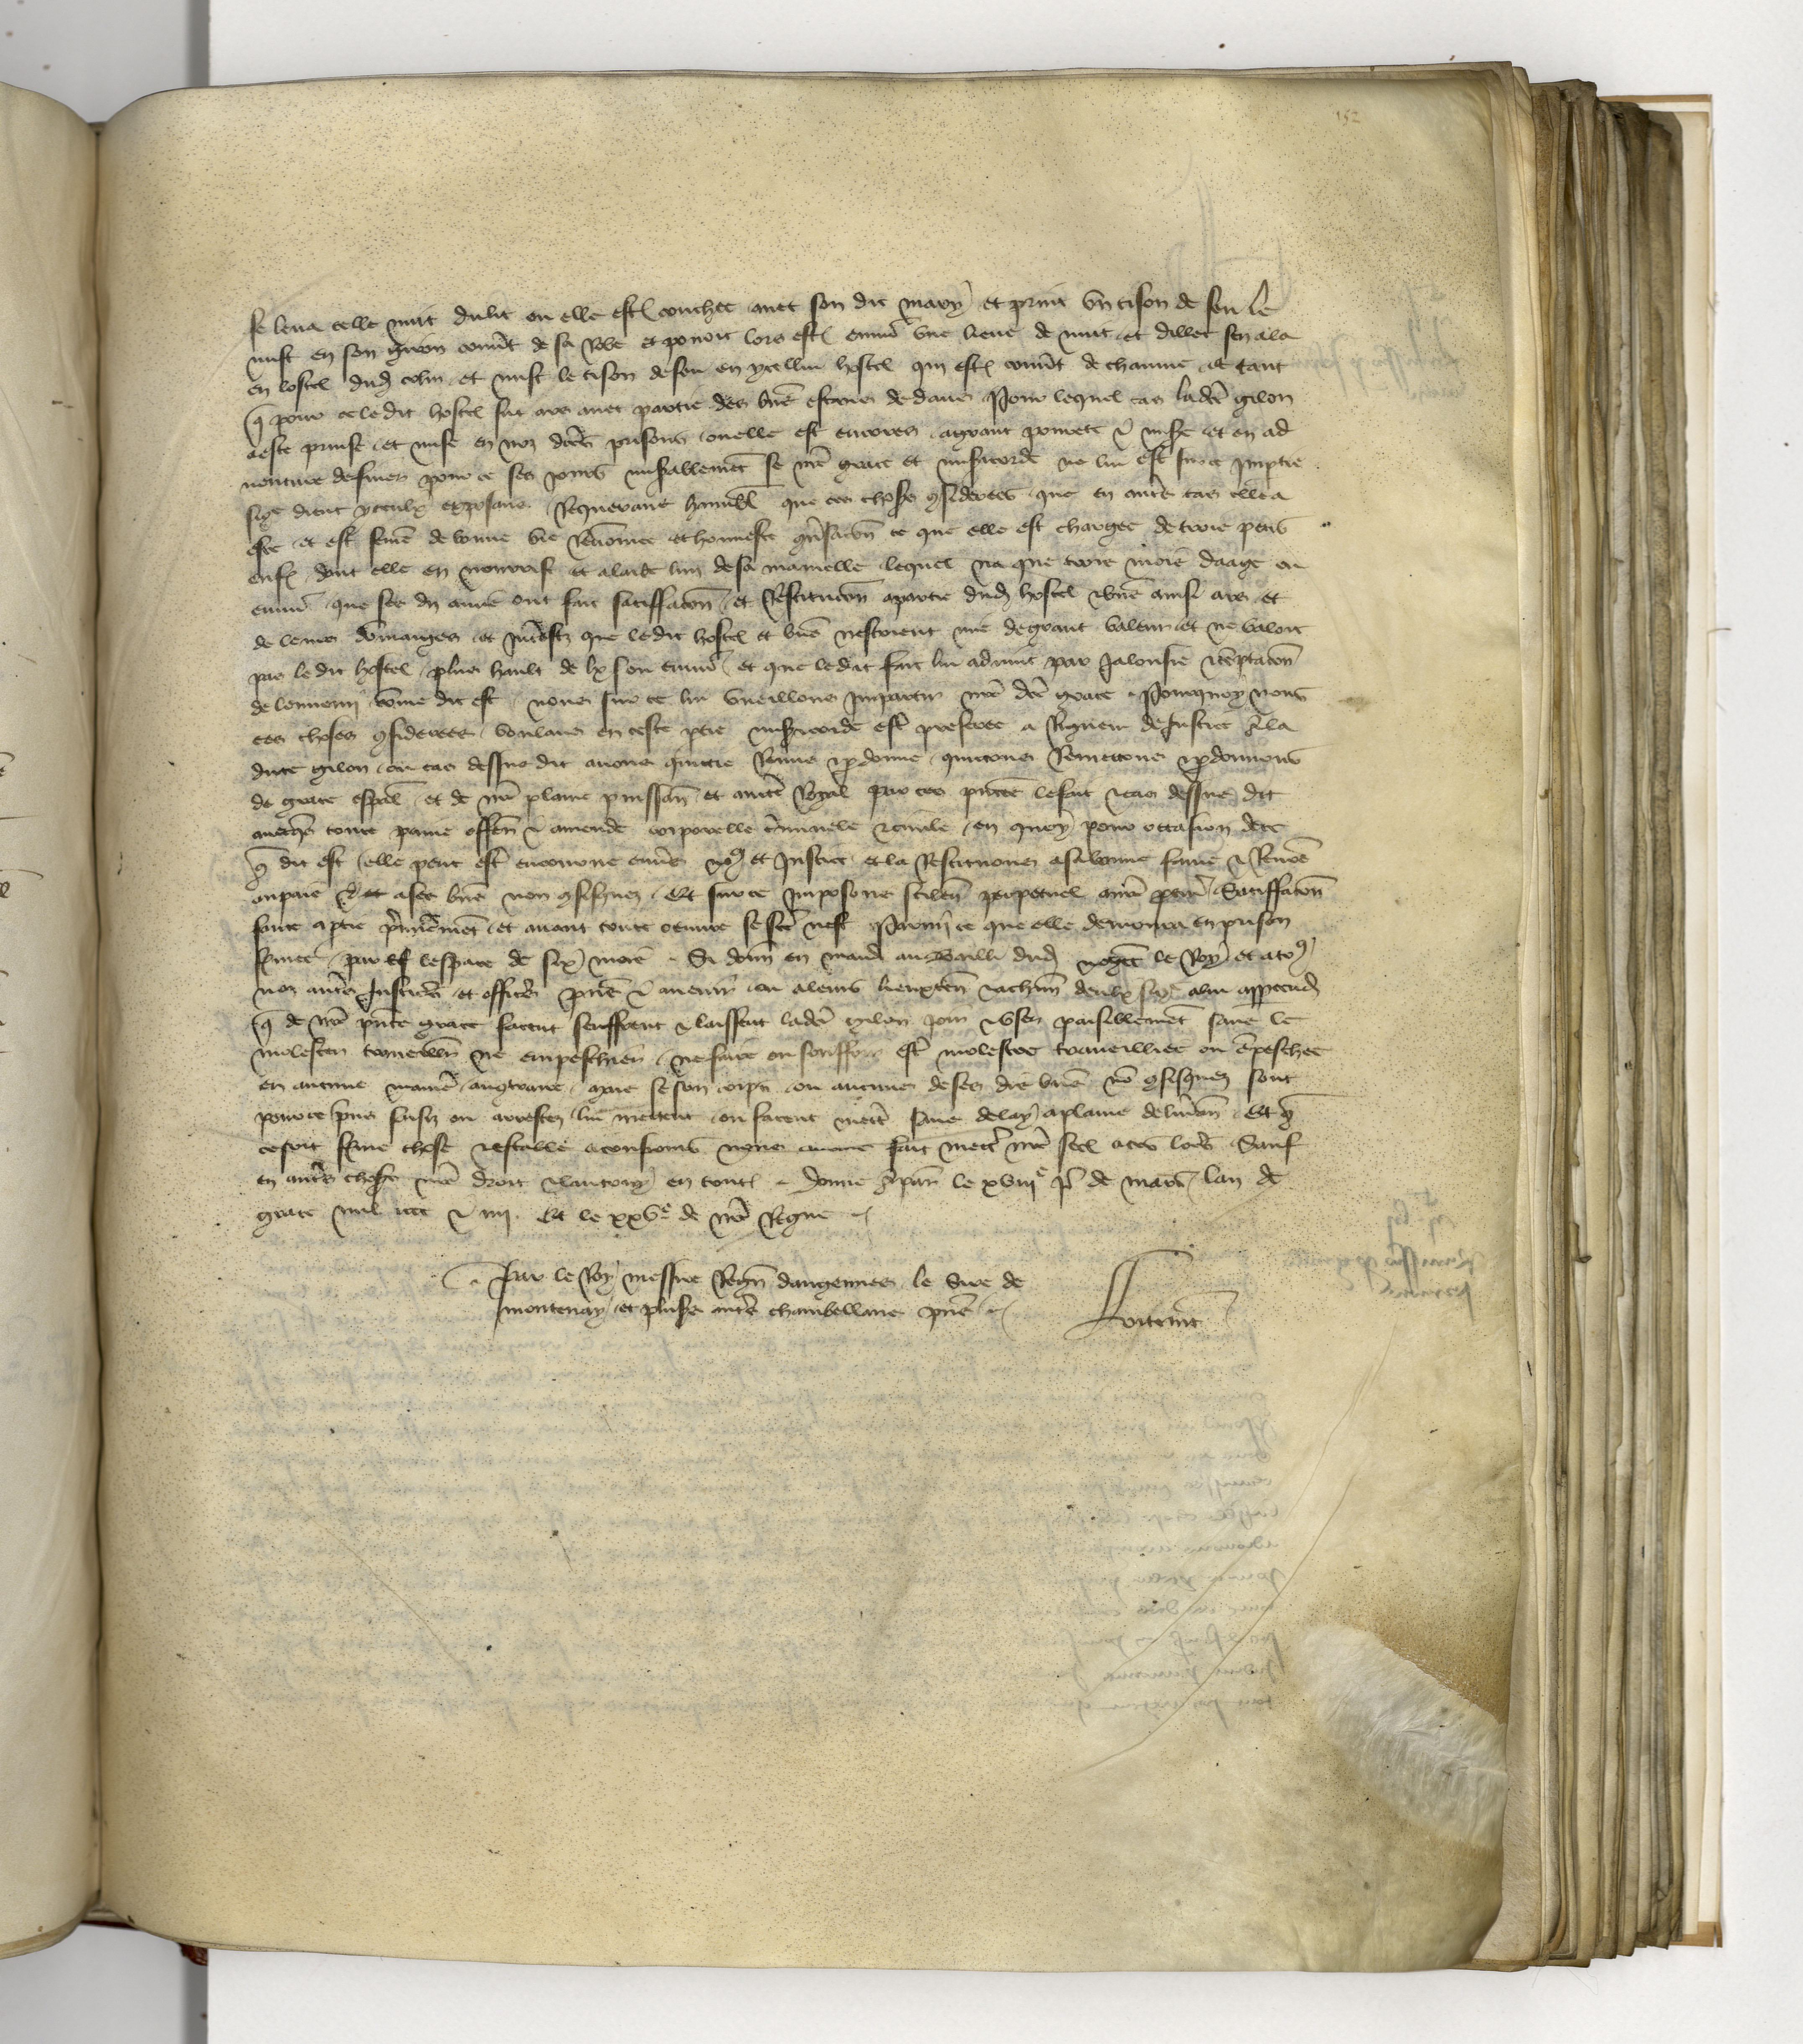 152
se leva celle nuit du lit ou elle estoit couchee avec son dit mary et print un tison de feu le
mist en son giron couvert de sa robe et povoit lors estre environ une lieue de nuit et dillec sen ala
en lostel dud colin et mist le tison de feu en ycellui hostel qui estoit couvert de chaume et tant
que pour ce le dit hostel fut ars avec partie des biens estans dedans Pour lequel cas ladicte gilon
a este prinse et mise en noz dictes prisons ou elle est encores a grant povrete et misere et en ad
venture de finer pour ce ses jours miserablement se nre grace et misericorde ne lui est sur ce impartie
si que dient yceulx exposans Requerans humblement que ces choses considerees que en autres cas elle a
este et est femme de bonne vie renommee et honneste conversacion ce que elle est chargee de trois petis
enfans dont elle en nourrist et alaite lun de sa mamelle lequel na que trois mois daage ou
environ que ses diz amis ont fait satisfacion et restitucion a partie dud hostel et biens ainsi ars et
de leurs dommages et interestz que ledit hostel et biens nestoient mie de grant valeur et ne valoit
pas le dit hostel plus hault de lx s ou environ et que ledit fait lui advint par jalousie et temptacion
de lennemi comme dit est nous sur ce lui vueillons impartir nre dicte grace Pourquoy nous
ces choses considerees voulans en ceste partie misericorde estre preferee a rigueur de justice a la
dicte gilon ou cas dessus dit avons quictie remis et pardonne quictons remettons et pardonnons
de grace especial et de nre plaine puissance et auctorite royal par ces presentes le fait et cas dessus dit
avecques toute paine offense et amende corporelle criminele et civile en quoy pour occasion de ce
que dit est elle peut estre encourue envers nous et justice et la restituons a sa bonne fame et renommee
au pais et a ses biens non confisquez Et sur ce imposons silence perpetuel a nre procureur Satisfacion
faicte a partie premierement et avant toute euvre se faicte nest Parmi ce que elle demourra en prison
fermee par lespace de six mois Si donnons en mandement au bailli dud le Roy et a touz
noz autres justiciers et officiers presens et avenir ou a leurs lieuxtenans et a chascun deulx si comme a lui appartendra
que de nre presente grace facent seuffrent et laissent ladicte gilon joir et user paisiblement sans le
molester traveillier ne empeschier ne faire ou souffrir estre molestee traveilliee ou empeschee
en aucune maniere au contraire mais se son corps ou aucuns de ses diz biens non confisquez sont
pour ce prins saisiz ou arrestez lui mettent ou facent mettre sans delay a plaine delivrance Et que
ce soit ferme chose et estable a tousjours nous avons fait mettre nre seel a ces lettres Sauf
en autres choses nre droit et lautruy en toutes Donne a paris le xviiie jour de mars lan de
grace mil iiiic et iiii Et le xxve de nre Regne
Par le Roy messire Regn dangennes le Sire de
montenay et pluseurs autres chambellans presens